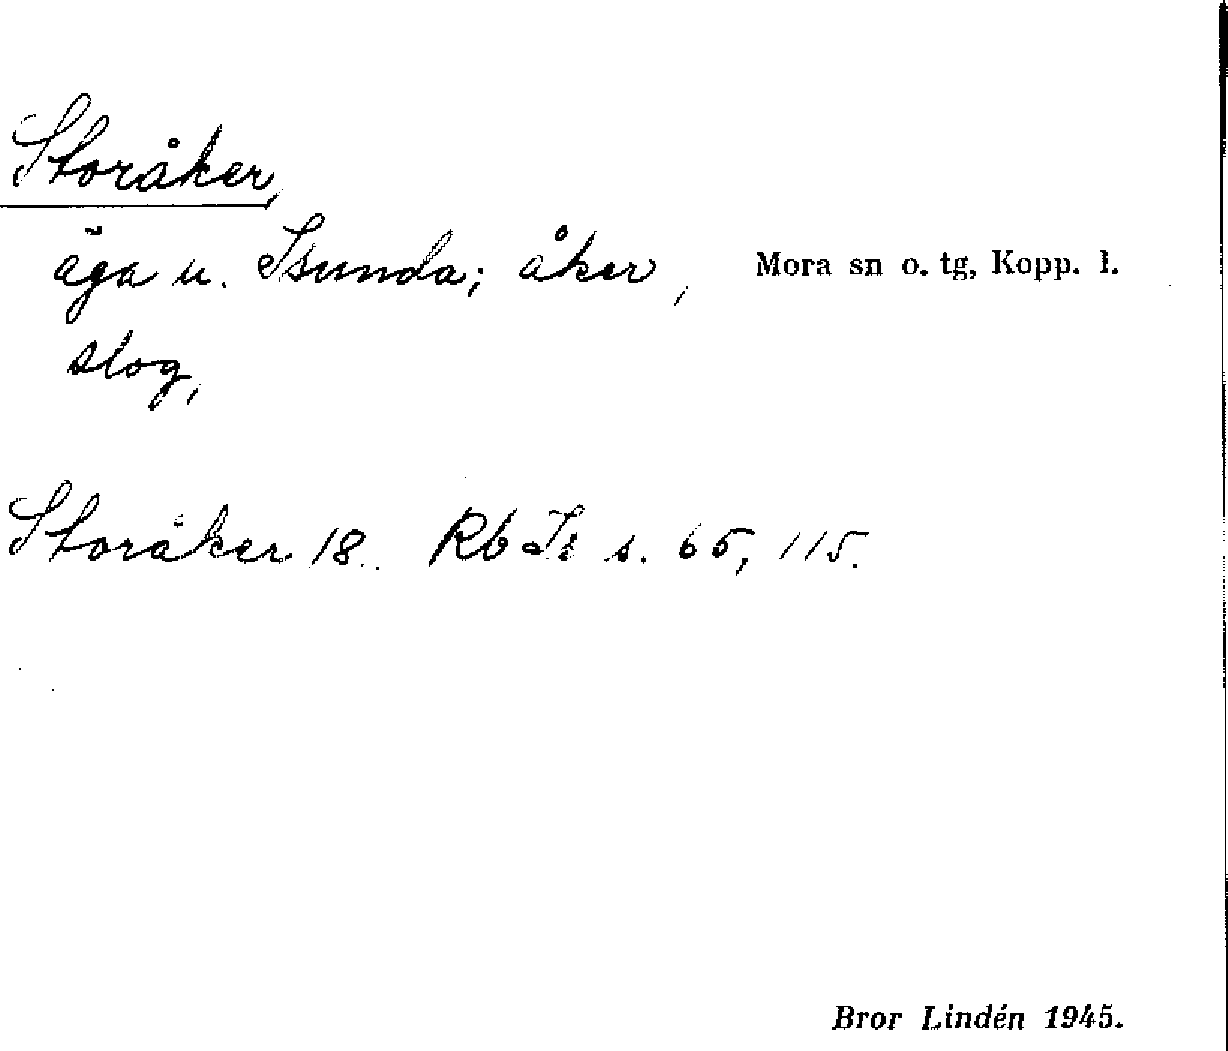 Storåker,
äga u. Isunda; åker, Mora sn o. tg, Kopp. l.
slog,
Storåker 18. Rb Is s. 65, 115.
Bror Lindén 1945.